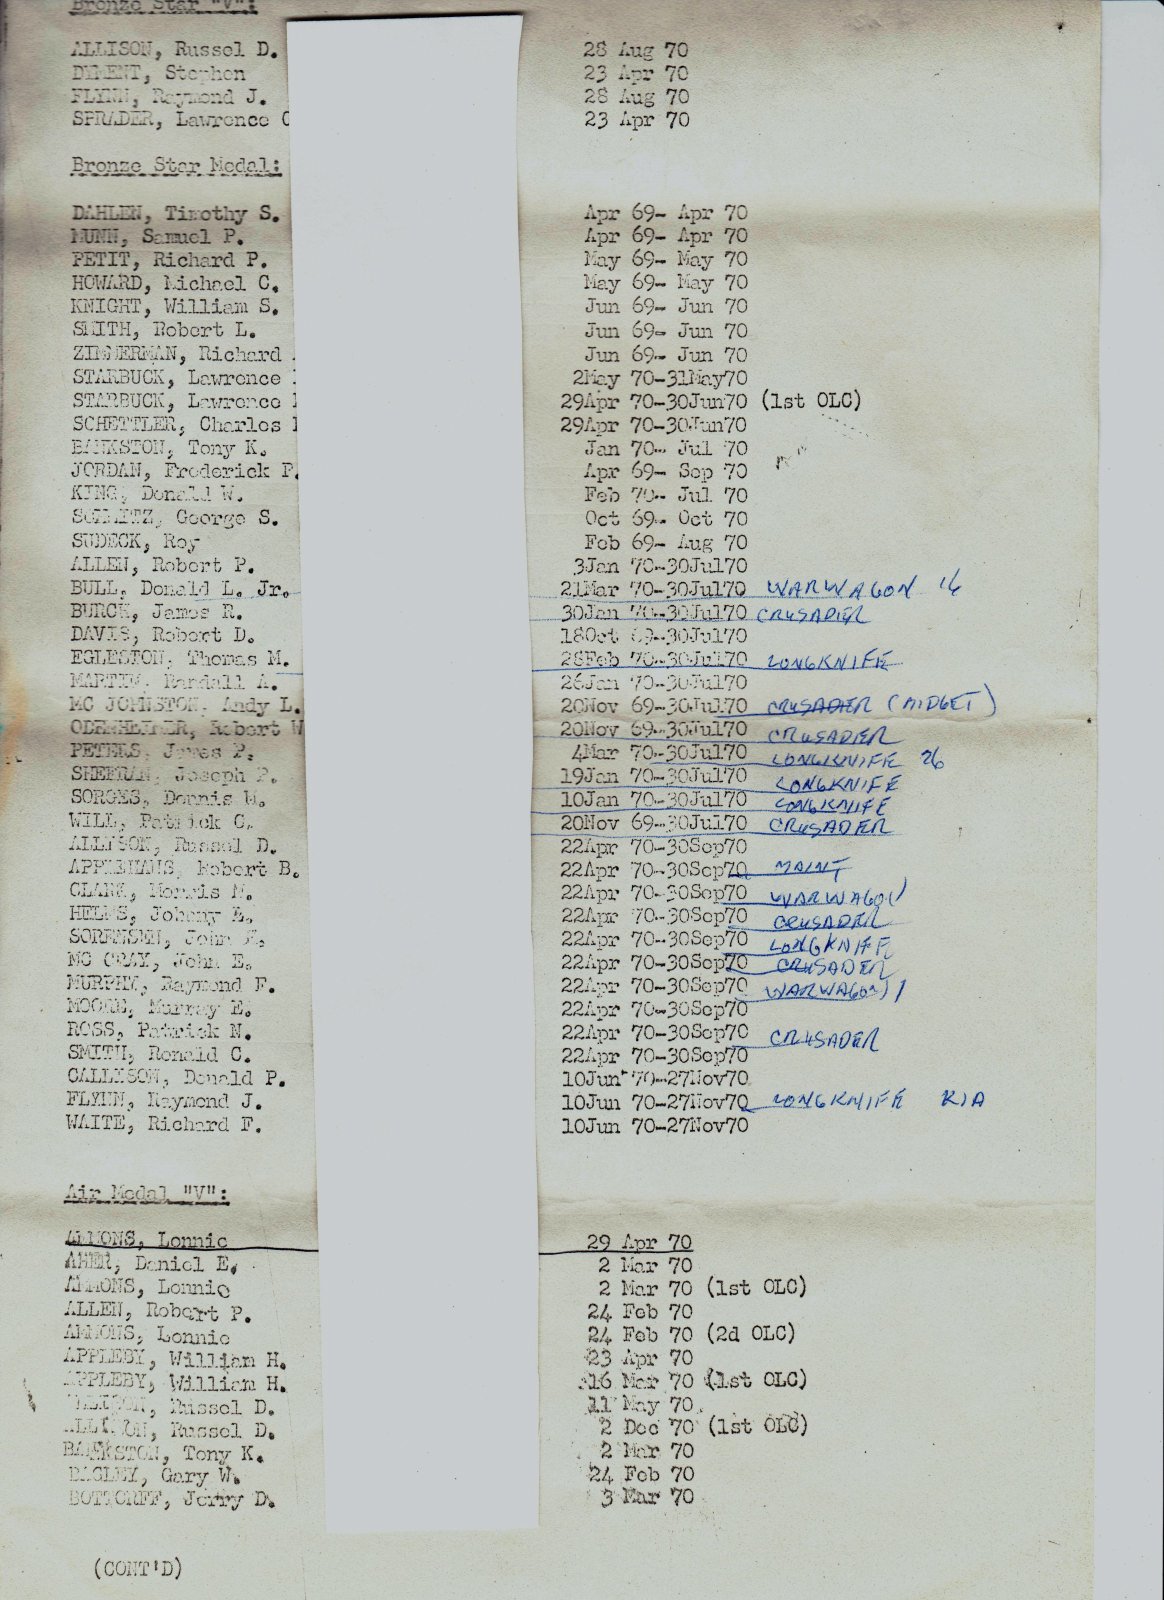 Bronze Star "V":
ALLISON, Russel D. 28 Aug 70
DYMENT, Stephen 23 Apr 70
FLYNN, Raymond J. 28 Aug 70
SPRADER, Lawrence 23 Apr 70
Bronze Star Medal:
DAHLEN, Timothy S. Apr 69- Apr 70
NUNN, Samuel P. Apr 69- Apr 70
PETIT, Richard P. May 69- May 70
HOWARD, Michael C. May 69- May 70
KNIGHT, William S. Jun 69- Jun 70
SMITH, Robert L. Jun 69- Jun 70
ZIMMERMAN, Richard Jun 69- Jun 70
STARBUCK, Lawrence 2May 70-31May70
STARBUCK, Lawrence 29Apr 70-30Jun70 (1st OLC)
SCHETTLER, Charles 29Apr 70-30Jun70
BANKSTON, Tony K. Jan 70- Jul 70
JORDAN, Frederick P. Apr 69- Sep 70
KING, Donald W. Feb 70- Jul 70
George S. Oct 69- Oct 70
SUDECK, Roy Feb 69- Aug 70
ALLEN, Robert P. 3Jan 70-30Jul70
BULL, Donald L. Jr. 21Mar 70-30Jul70 WARWAGON 16
BURCK, James R. 30Jan 70-30Jul70 CRUSADER
DAVIS, Robert D. 18Oct 69-30Jul70
EGLESTON, Thomas M. 28Feb 70-30Jul70 LONGKNIFE
MARTIN, Randall A. 26Jan 70-30Jul70
MC JOHNSTON, Andy L. 20Nov 69-30Jul70 CRUSADER (MIDGET)
ODENHEIMER, Robert W 20Nov 69-30Jul70 CRUSADER
PETERS, James P. 4Mar 70-30Jul70 LONGKNIFE 26
SHEERAN, Joseph P. 19Jan 70-30Jul70 LONGKNIFE
SORGES, Dennis W. 10Jan 70-30Jul70 LONGKNIFE
WILL, Patrick C. 20Nov 69-30Jul70 CRUSADER
ALLISON, Russel D. 22Apr 70-30Sep70
APPLEHANS, Robert B. 22Apr 70-30Sep70 MAINT
CLARK, Morris M. 22Apr 70-30Sep70 WARWAGON
HELMS, Johnny E. 22Apr 70-30Sep70 CRUSADER
SORENSEN, John 22Apr 70-30Sep70 LONGKNIFE
MC CRAY, John E. 22Apr 70-30Sep70 CRUSADER
MURPHY, Raymond F. 22Apr 70-30Sep70 WARWAGON 1
MOORE, Murray E. 22Apr 70-30Sep70
ROSS, Patrick N. 22Apr 70-30Sep70 CRUSADER
SMITH, Ronald C. 22Apr 70-30Sep70
CALLISON, Donald P. 10Jun 70-27Nov70
FLYNN, Raymond J. 10Jun 70-27Nov70 LONGKNIFE KIA
WAITE, Richard F. 10Jun 70-27Nov70
Air Medal "V":
AMMONS, Lonnie 29 Apr 70
AHER, Daniel E. 2 Mar 70
AMMONS, Lonnie 2 Mar 70 (1st OLC)
ALLEN, Robert P. 24 Feb 70
AMMONS, Lonnie 24 Feb 70 (2d OLC)
APPLEBY, William H. 23 Apr 70
APPLEBY, William H. 16 Mar 70 (1st OLC)
ALLISON, Russel D. 11 May 70
ALLISON, Russel D. 2 Dec 70 (1st OLC)
BANKSTON, Tony K. 2 Mar 70
BAGLEY, Gary W. 24 Feb 70
BOTTORFF, Jerry D. 3 Mar 70
(CONT'D)